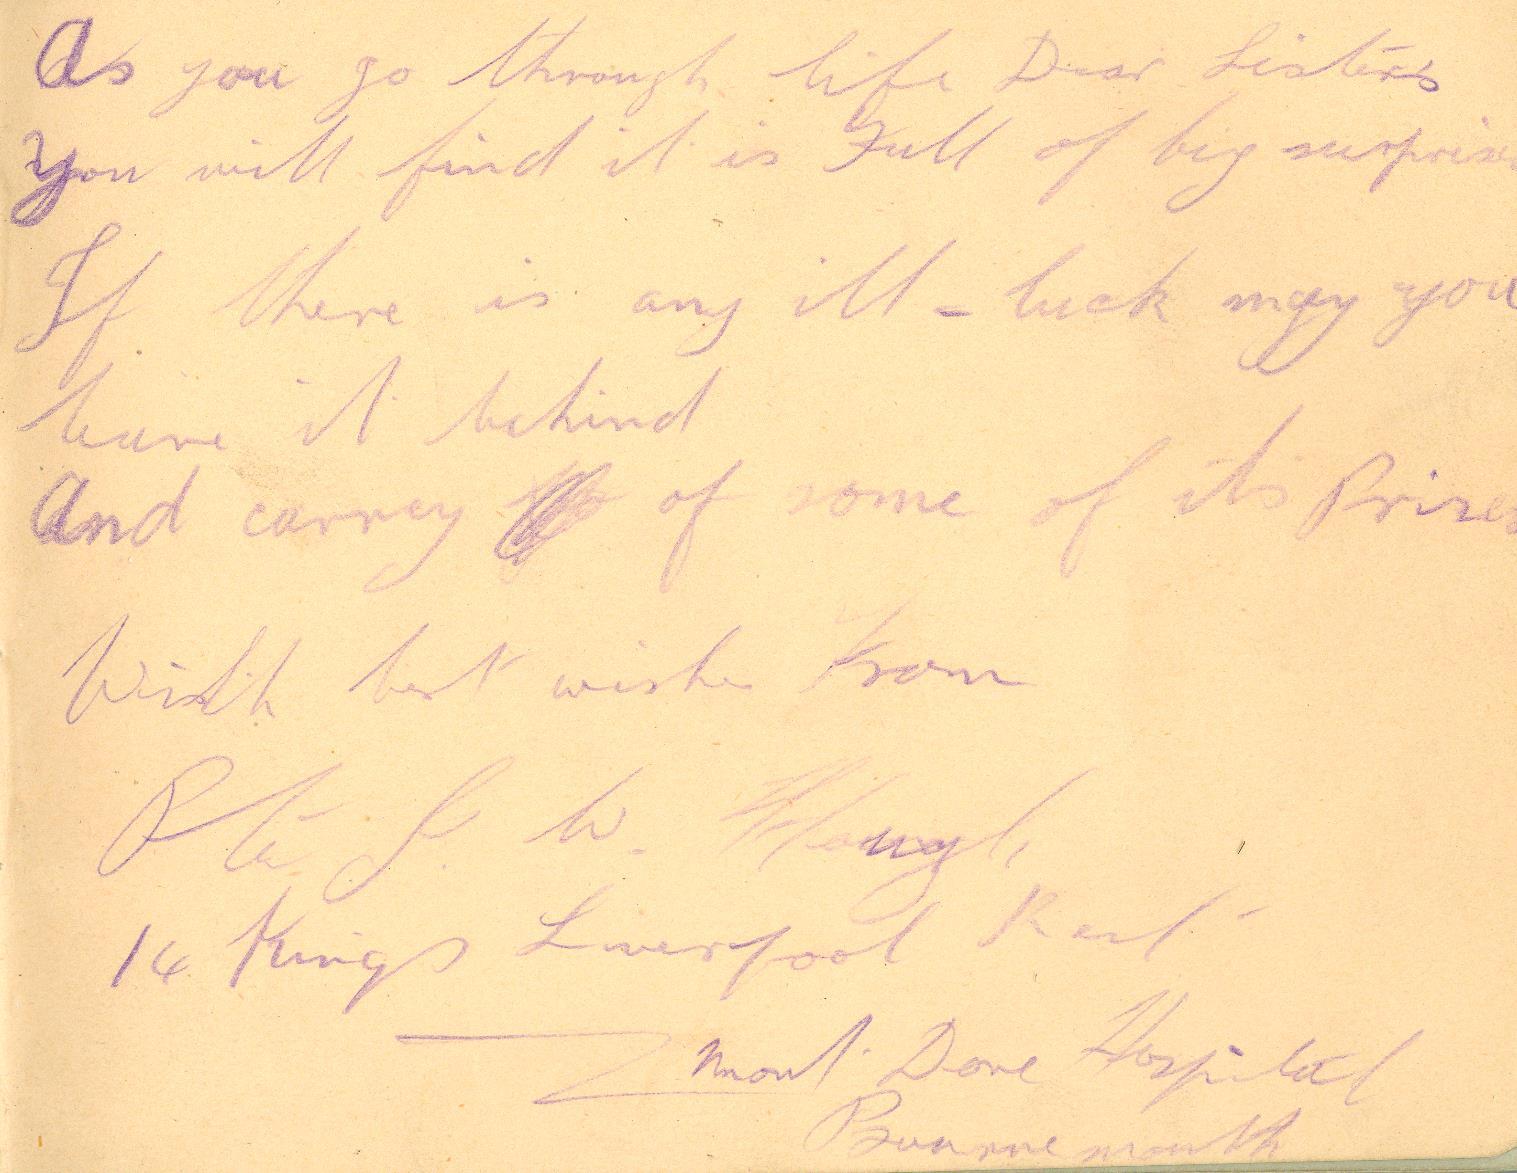 As you go through life Dear Sisters
You will find it is Full of big surprises
If there is any ill-luck may you
leave it behind
And carrey of some of its Prizes
With best wishes From
Pte J. W.
14 Kings Liverpool Regt
Mont Dore Hospital
Bournemouth